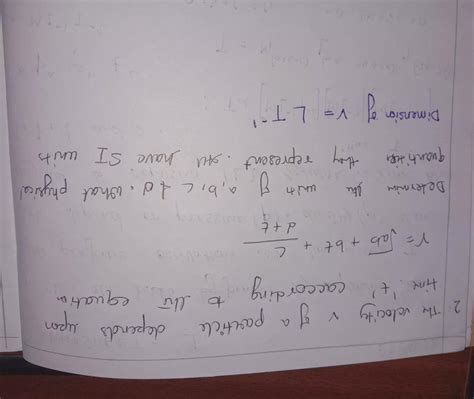 2 The velocity v of a particle depends upon
time 't' caccording to the equation
V = √ab + bt + c/(d+t)
Determin the units of a, b, c & d. What physical
quantities they represent. All have SI units
Dimension of V = L T⁻¹